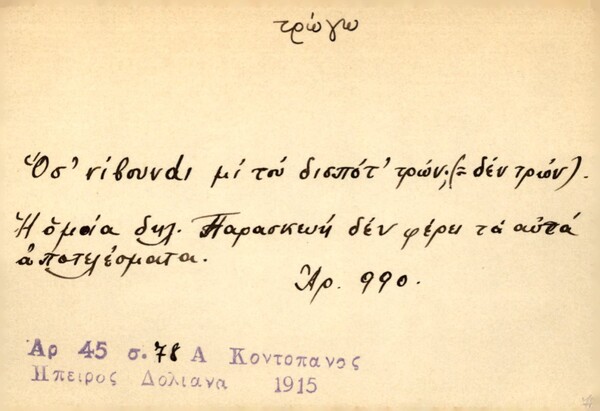 τρώγω
Ὅσ' νίβουνdι μί τού δισπότ' τρών; (= δέν τρών).
Ἡ ὁμοία δηλ. Παρασκευή δέν φέρει τά αὐτά
ἀποτελέσματα.
Ἀρ. 990.
Αρ 45 σ. 78 Α Κοντοπανος
Ηπειρος Δολιανα 1915